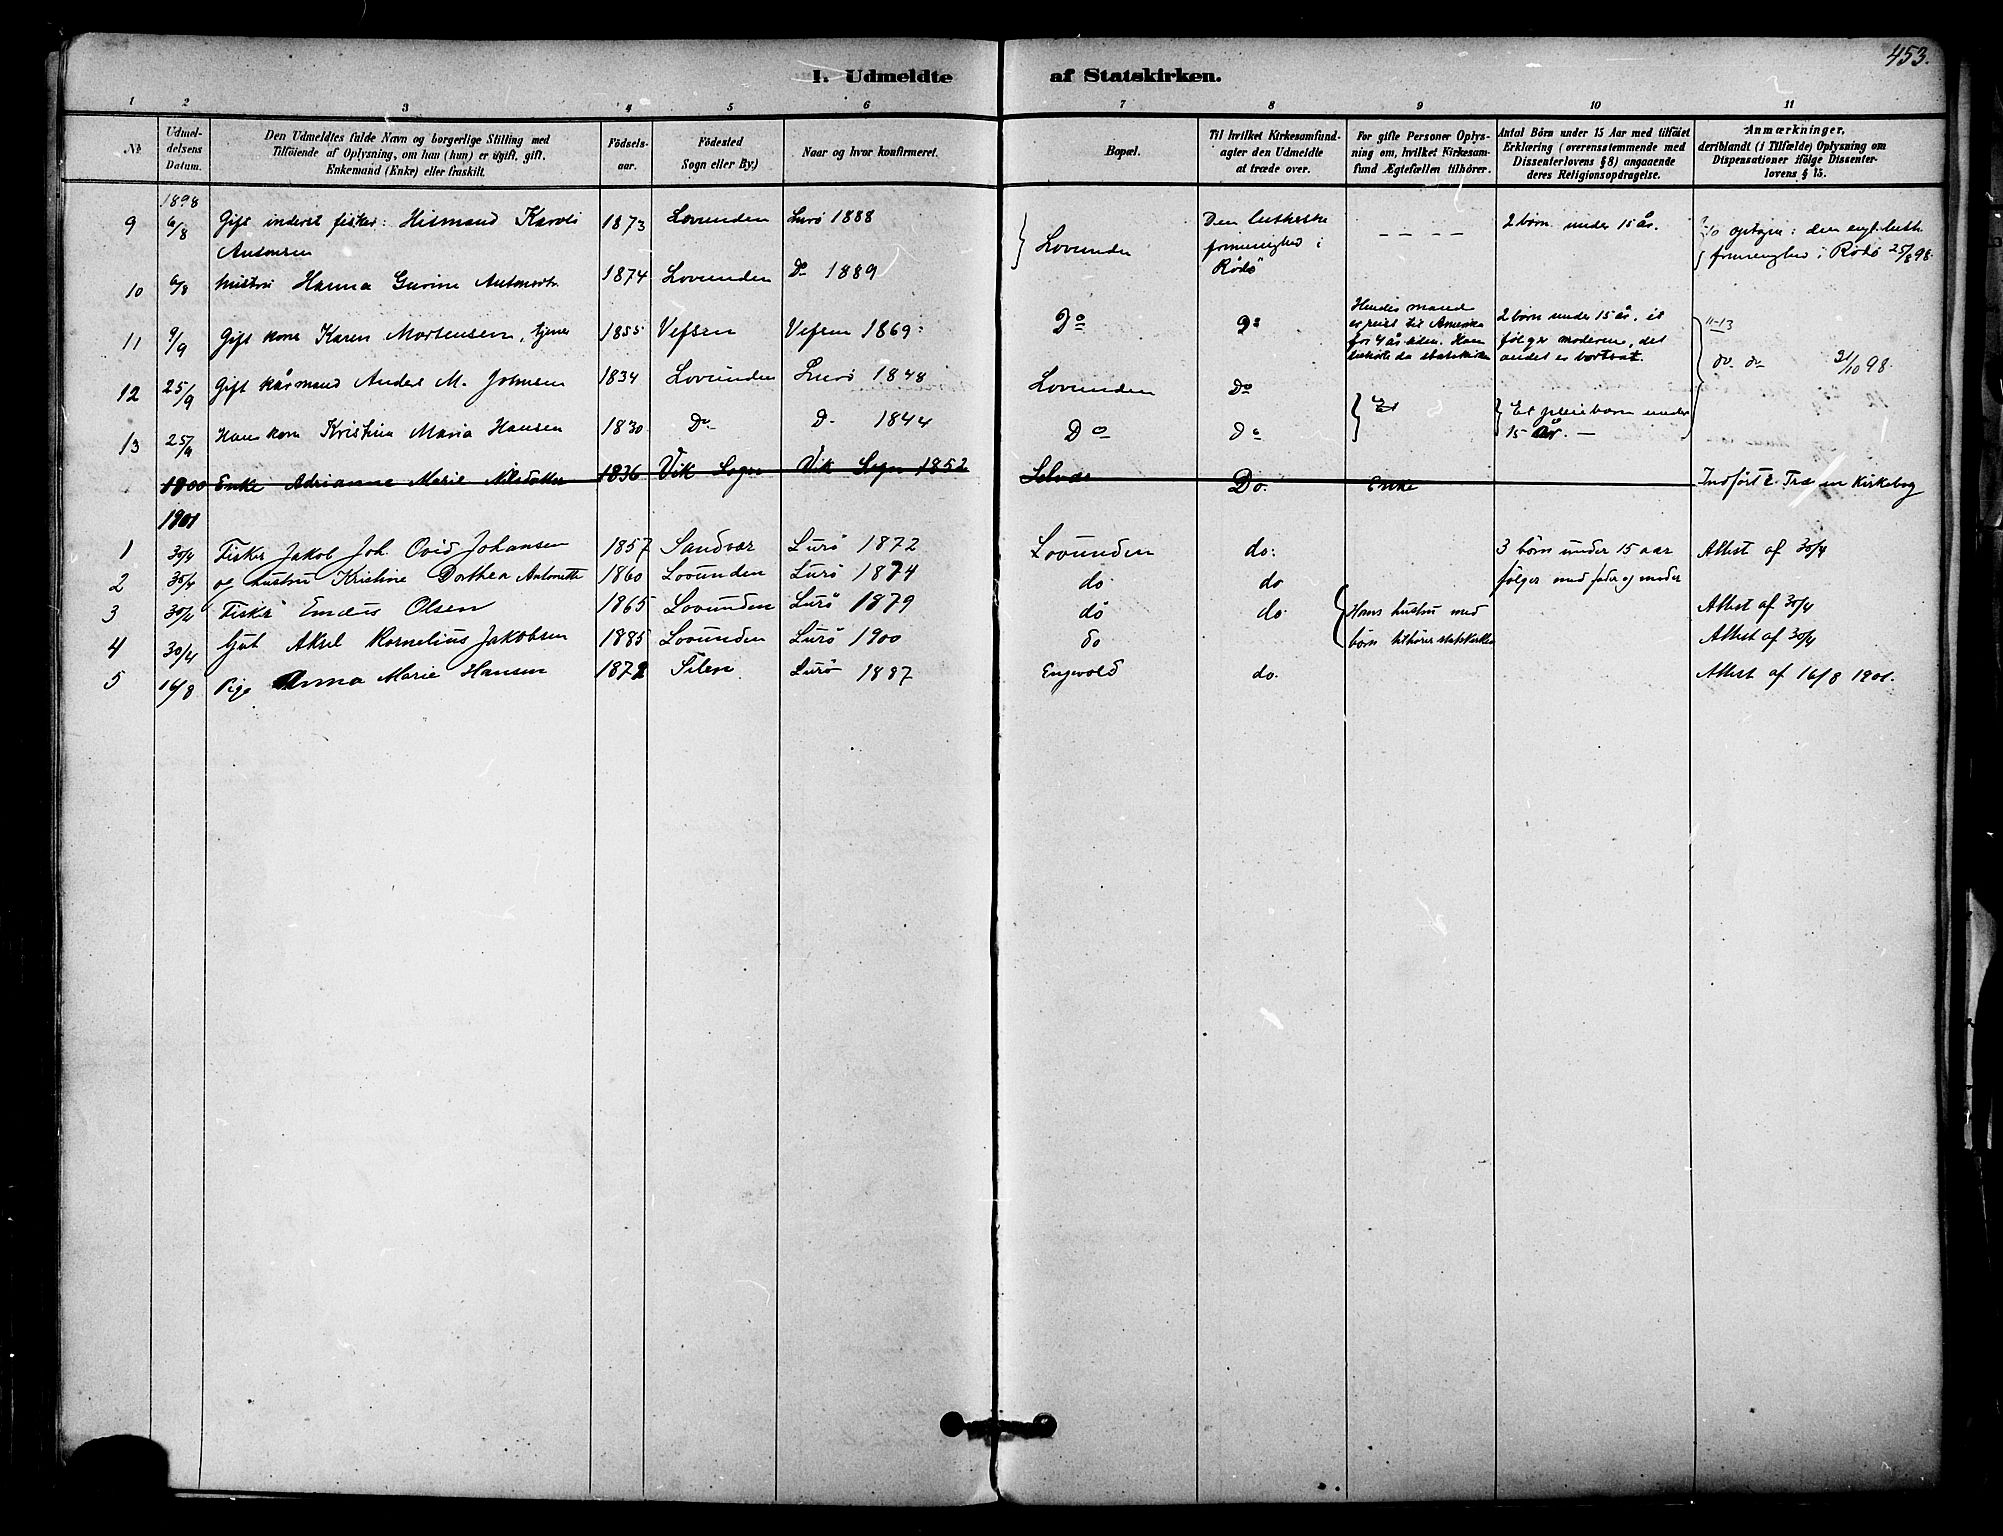 453.
I. Udmeldte af Statskirken.
1 2 3 4 5 6 7 8 9 10 11
No
Udmeldelsens Datum.
Den Udmeldtes fulde Navn og borgerlige Stilling med
Tilföiende af Oplysning, om han (hun) er ugift, gift,
Enkemand (Enke) eller fraskilt.
Födsels-
aar.
Födested
Sogn eller By.)
Naar og hvor konfirmeret.
Bopæl.
Til hvilket Kirkesamfund
agter den Udmeldte
at træde over.
For gifte Personer Oplys-
ning om, hvilket Kirkesam-
fund Ægtefællen tilhörer.
Antal Börn under 15 Aar med tilföiet
Erklæring (overensstemmende med
Dissenterlovens § 8) angaaende
deres Religionsopdragelse.
Anmærkninger,
deriblandt (i Tilfælde) Oplysning om
Dispensationer ifölge Dissenter-
lovens § 15.
1898
9 6/8 Gift inderst fisker: Hilmand Karoli Antonsen 1873 Lovunden Lurö 1888 Lovunden Den lutherske frimenighed i Rödö — — — — 2 börn under 15 år. optagn i den evgl. luth. frimenighed i Rödö 25/8 98.
10 6/8 hustru Hanna Gurine Antonsdtr. 1874 Lovunden Do 1889
11 9/9 Gift kone Karen Mortensen, tjener 1855 Vefsen Vefsen 1869: Do Do Hendes mand er reist til Amerika for 4 år siden. Han tilhörte da statskirken 2 börn under 15 år, et fölger moderen, det andet er bortsat. 11-13 do do 21/10 98.
12 25/9 Gift kårmand Anders M. Johnsen 1834 Lovunden Lurö 1848 Lovunden Do Et pleiebarn under 15 År. —
13 25/9 Hans kone Kristina Maria Hansen 1830 Do D. 1844 Do Do
1900 Enke Adrianna Marie Nilsdatter 1836 Vik Sogn Vik Sogn 1852 Selvær Do. Enke Indfört i Træ en Kirkebog
1901
1 30/4 Fisker Jakob Joh. Ovid Johansen 1857 Sandvær Lurö 1872 Lovunden do: 3 börn under 15 aar Attest af 30/4
2 30/4 og hustru Kristine Dorthea Antonette 1860 Lovunden Lurö 1874 do do fölger med fader og moder
3 30/4 Fisker Enæus Olsen 1865 Lovunden Lurö 1879 do do Hans hustru med Attest af 30/4
4 30/4 Gut Aksel Kornelius Jakobsen 1885 Lovunden Lurö 1900 do börn tilhörer statskirken Attest af 30/4
5 16/8 Pige Anna Marie Hansen 1872 Silen Lurö 1887 Engvold do. Attest af 16/8 1901.